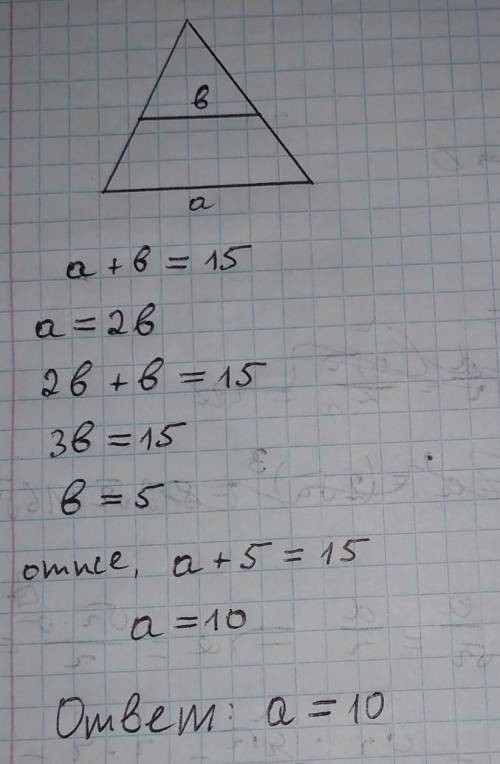 в
a
a + в = 15
a = 2в
2в + в = 15
3в = 15
в = 5
отже, a + 5 = 15
a = 10
Ответ: a = 10